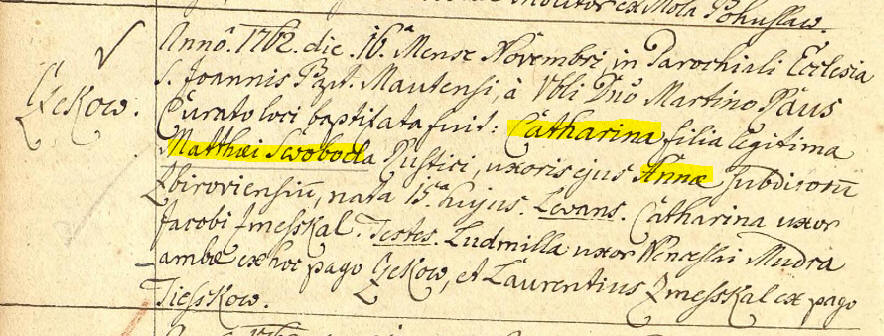 Molitor ex Mola Pohuslaw.
Annô. 1762. die. 16.a Mense Novembri, in Parochiali Ecclesia
Czekow.
S. Joannis Bapt. Mautensi, à Vbli Dnô Martino Paus
Curato loci baptizata fuit: Catharina filia legitima
Matthæi Swoboda Rustici, uxoris ejus Annæ subditorū
Zbiroviensiū, nata 15.ta hujus. Levans. Catharina uxor
Jacobi Zmesskal. Testes. Ludmilla uxor Wenceslai Mudra
ambæ ex hoc pago Czekow, et Laurentius Zmesskal ex pago
Tiesskow.